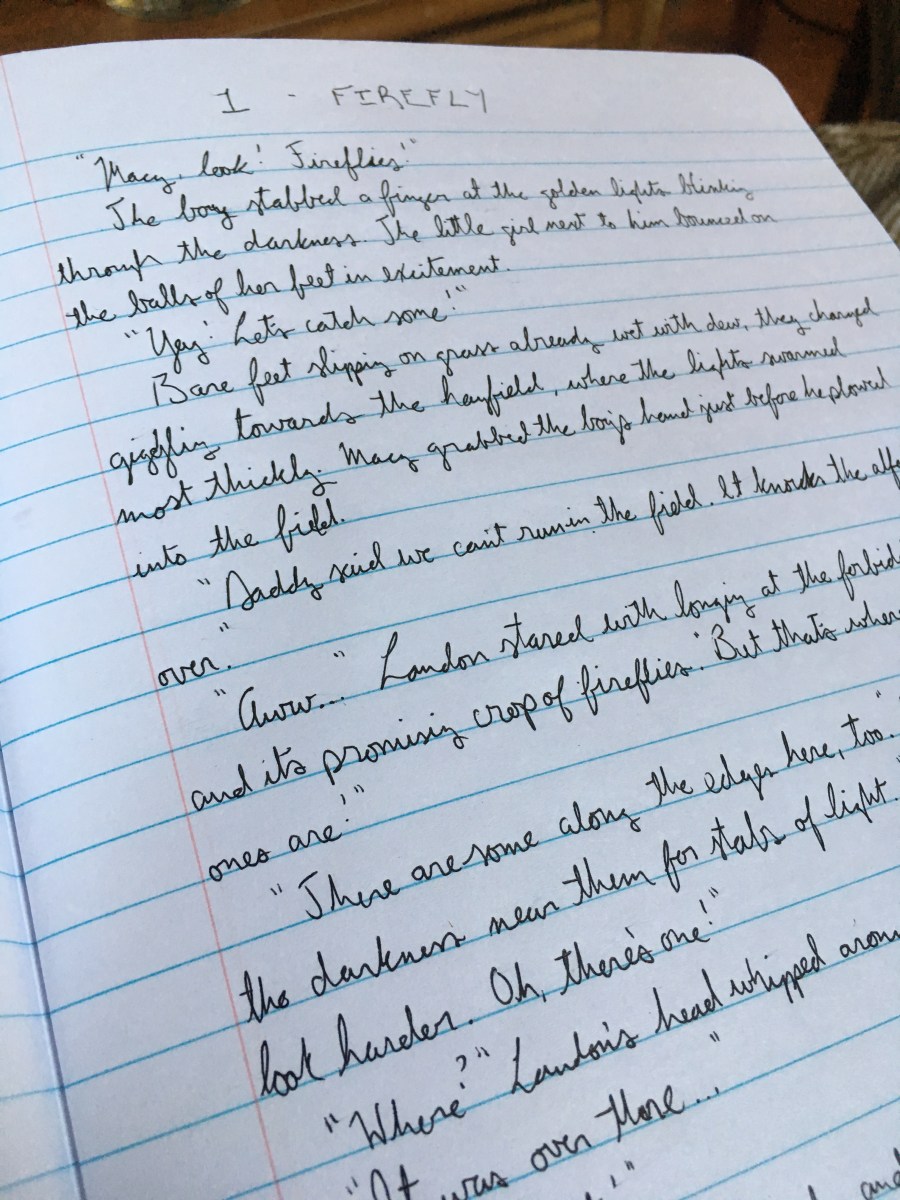 1 - FIREFLY
"Macy, look! Fireflies!"
The boy stabbed a finger at the golden lights blinking
through the darkness. The little girl next to him bounced on
the balls of her feet in excitement.
"Yay! Let's catch some!"
Bare feet slipping on grass already wet with dew, they charged
giggling towards the hayfield, where the lights swarmed
most thickly. Macy grabbed the boy's hand just before he plowed
into the field.
"Daddy said we can't run in the field. It knocks the alfa
over."
"Aww..." Landon stared with longing at the forbid
and its promising crop of fireflies. "But that's where
ones are!"
"There are some along the edges here, too."
the darkness near them for stabs of light. "
look harder. Oh, there's one!"
"Where?" Landon's head whipped aroun
"It was over there..."
and